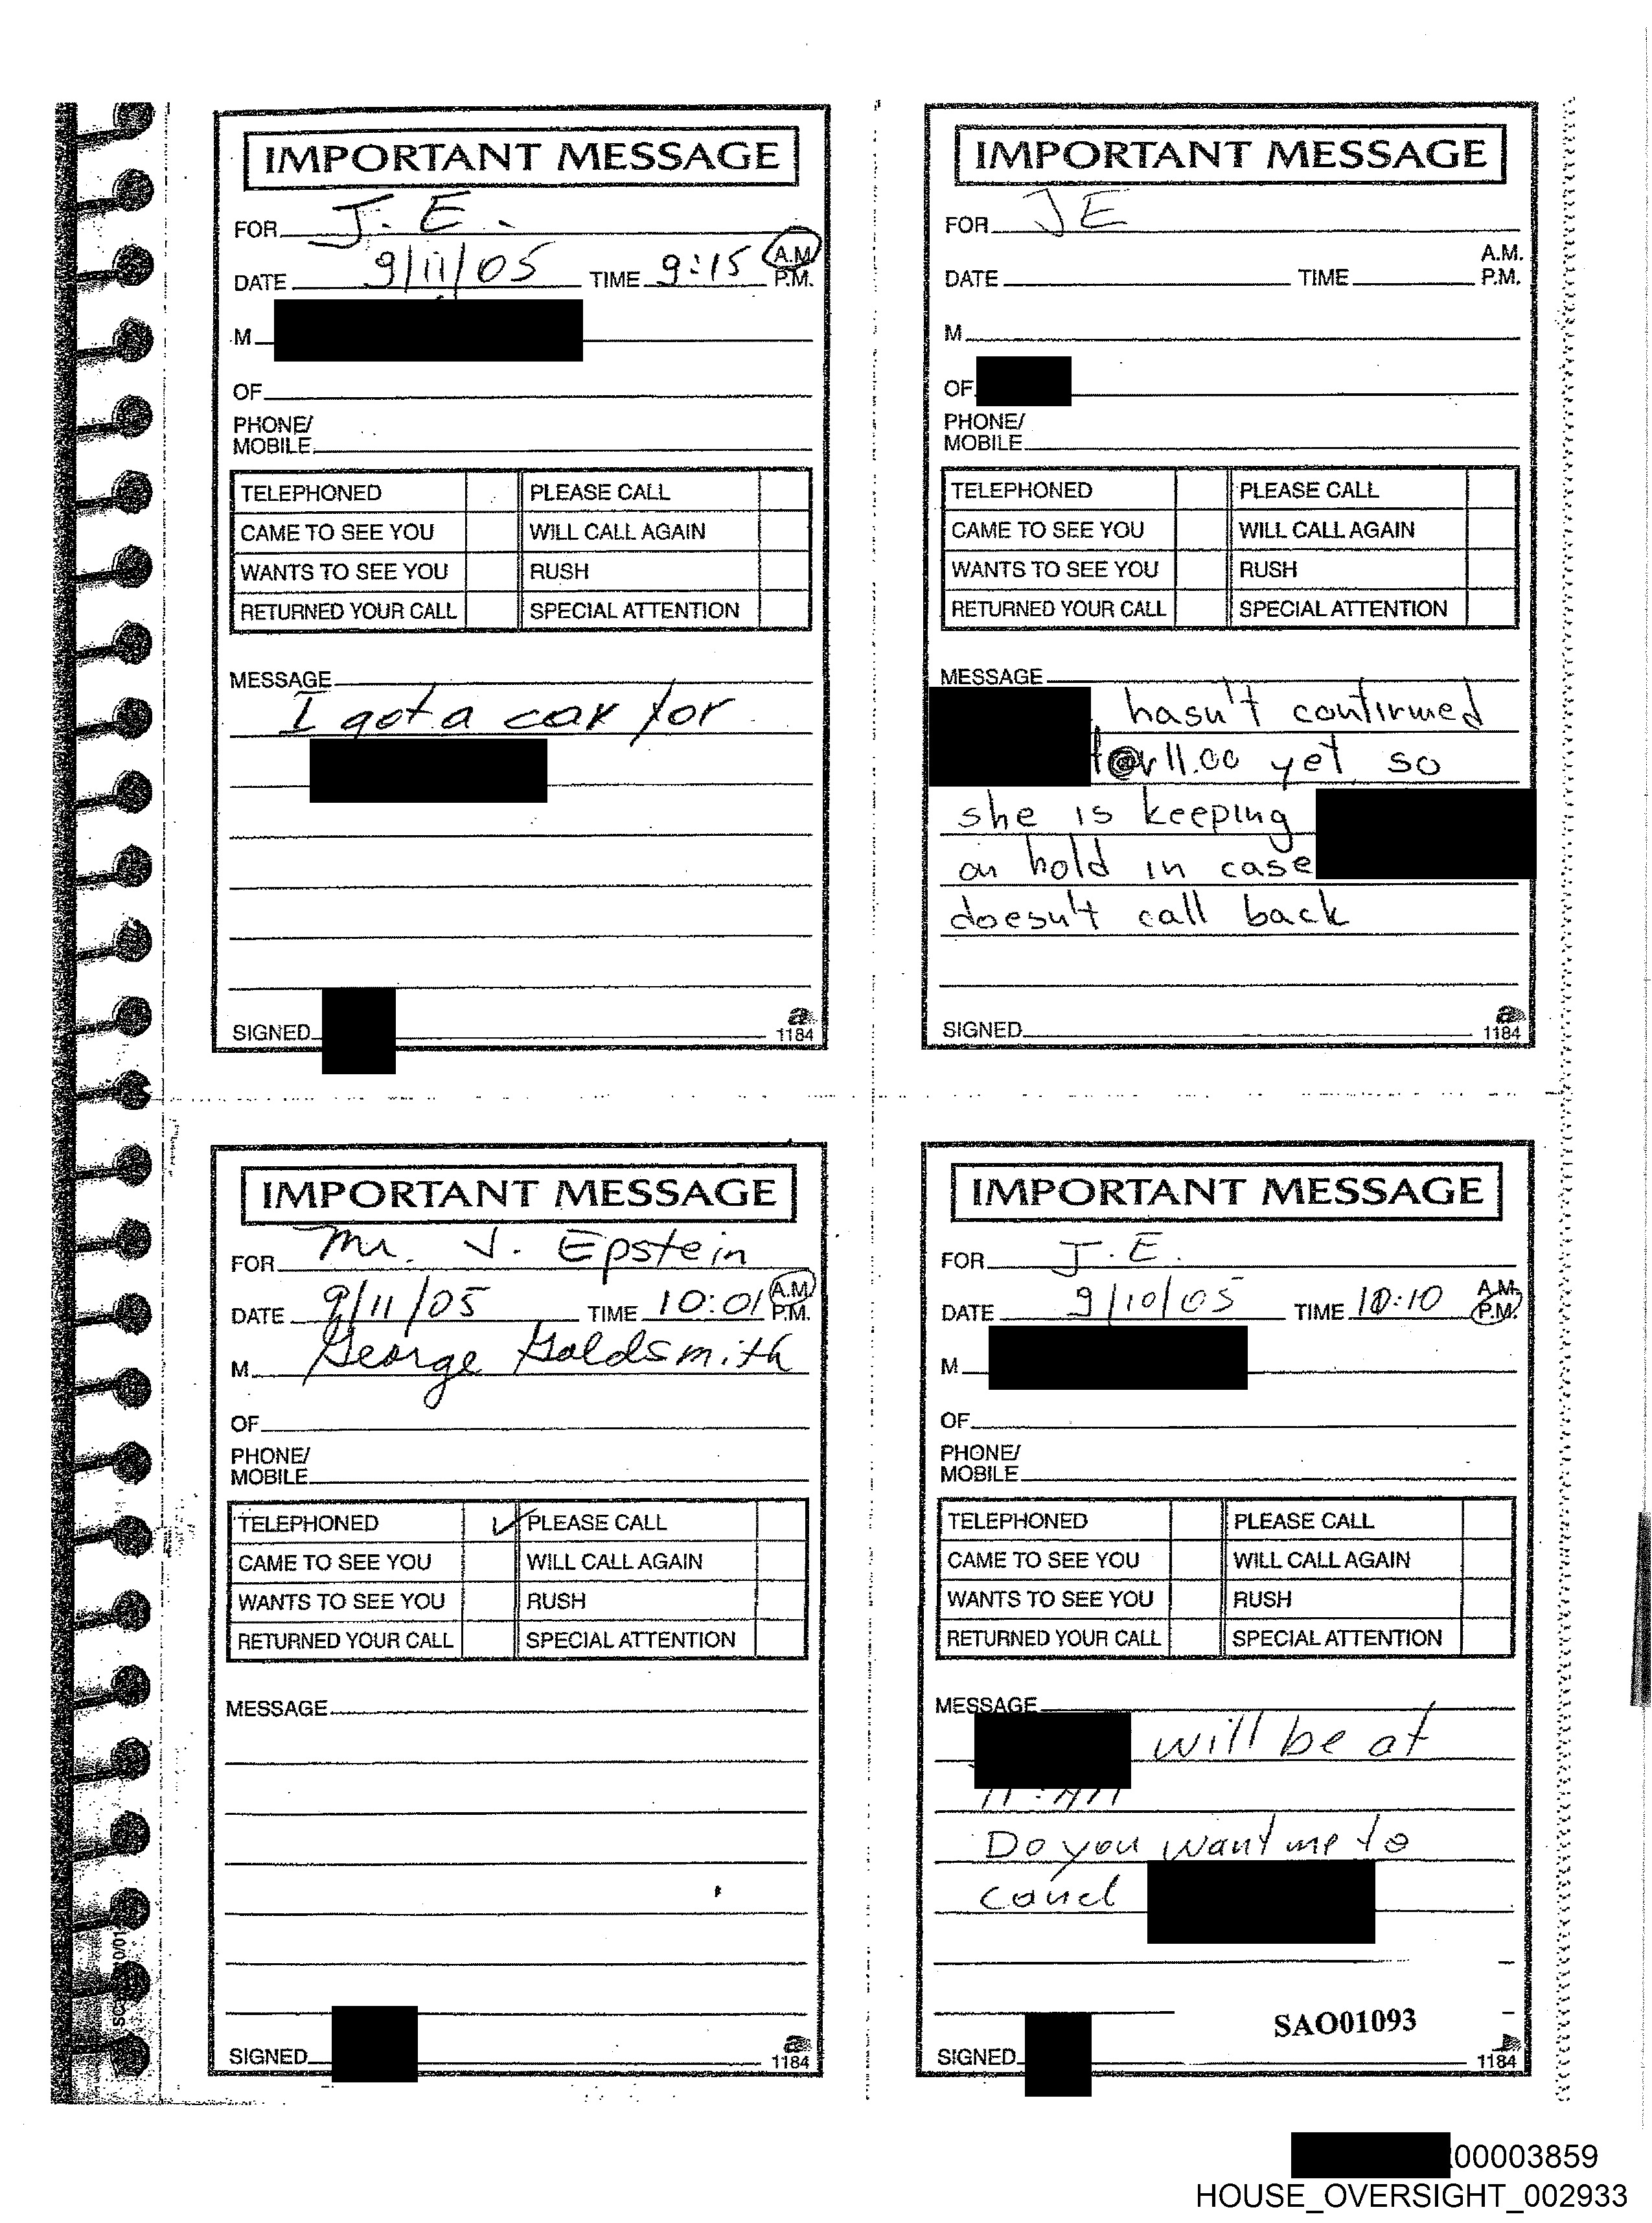 IMPORTANT MESSAGE
FOR J. E.
DATE 9/11/05 TIME 9:15 A.M.
P.M.
M
OF
PHONE/
MOBILE
TELEPHONED PLEASE CALL
CAME TO SEE YOU WILL CALL AGAIN
WANTS TO SEE YOU RUSH
RETURNED YOUR CALL SPECIAL ATTENTION
MESSAGE
I got a car for
SIGNED
1184
IMPORTANT MESSAGE
FOR JE
A.M.
DATE TIME P.M.
M
OF
PHONE/
MOBILE
TELEPHONED PLEASE CALL
CAME TO SEE YOU WILL CALL AGAIN
WANTS TO SEE YOU RUSH
RETURNED YOUR CALL SPECIAL ATTENTION
MESSAGE
hasn't confirmed
11.00 yet so
she is keeping
on hold in case
doesn't call back
SIGNED
1184
IMPORTANT MESSAGE
FOR Mr. J. Epstein
DATE 9/11/05 TIME 10:01 A.M.
P.M.
M George Goldsmith
OF
PHONE/
MOBILE
TELEPHONED ✓ PLEASE CALL
CAME TO SEE YOU WILL CALL AGAIN
WANTS TO SEE YOU RUSH
RETURNED YOUR CALL SPECIAL ATTENTION
MESSAGE
SIGNED
1184
IMPORTANT MESSAGE
FOR J. E.
DATE 9/10/05 TIME 10:10 A.M.
P.M.
M
OF
PHONE/
MOBILE
TELEPHONED PLEASE CALL
CAME TO SEE YOU WILL CALL AGAIN
WANTS TO SEE YOU RUSH
RETURNED YOUR CALL SPECIAL ATTENTION
MESSAGE
will be at
Do you want me to
cancl
SAO01093
SIGNED
1184
00003859
HOUSE_OVERSIGHT_002933